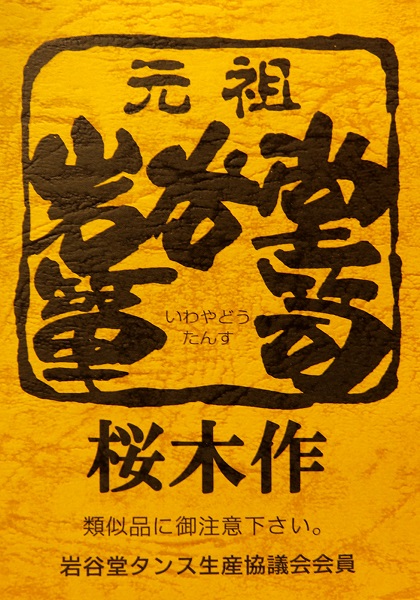 元祖
岩谷堂
簞笥
いわやどう
たんす
桜木作
類似品に御注意下さい。
岩谷堂タンス生産協議会会員